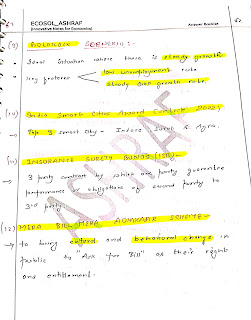 ECOSOL_ASHRAF
(Innovative Notes for Economics)
Answer Booklet
(9) GOLDILOCK SCENARIO :-
→ Ideal Situation where there is steady growth.
→ Key features
low unemployment rate
steady GDP growth rate.
(10) India Smart Cities Award Contest 2022:
→ Top 3 smart city - Indore, Surat & Agra.
(11) INSURANCE SURETY BONDS (ISB):-
→ 3 party contract by which one party guarantee
performance or obligations of second party to
3rd party.
(12) MERA BILL MERA ADHIKAAR SCHEME -
→ to bring cultural and behavioral change in
public to "Ask for Bill" as their right
and entitlement.
ASHRAF